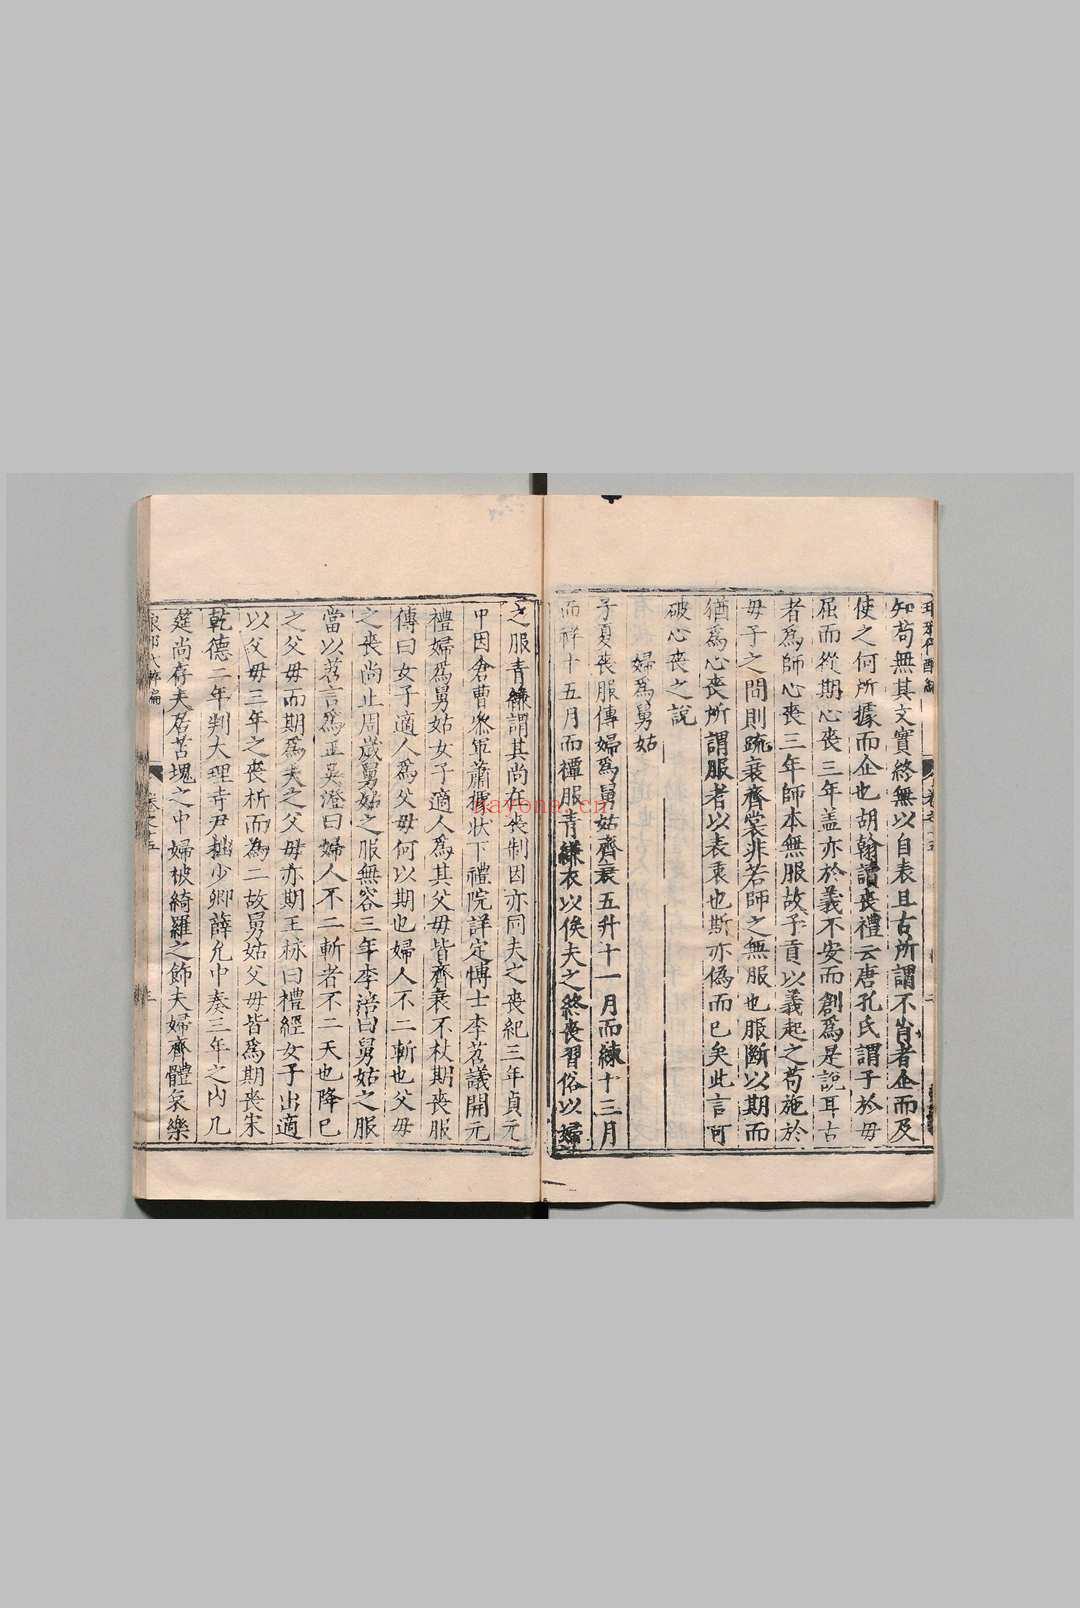 知苟無其文實終無以自表且古所謂不肖者企而及
使之何所據而企也胡翰讀喪禮云唐孔氏謂子於毋
屈而從期心喪三年盖亦於義不安而創爲是說耳古
者爲師心喪三年師本無服故子貢以義起之苟施於
毋子之間則疏衰齊裳非若師之無服也服斷以期而
猶爲心喪所謂服者以表衷也斯亦偽而已矣此言可
破心喪之說
婦爲舅姑
子夏喪服傳婦爲舅姑齊衰五升十一月而練十三月
而祥十五月而禫服青縑衣以俟夫之終喪習俗以婦
之服青縑謂其尚在喪制因亦同夫之喪紀三年貞元
中因倉曹叅軍蕭據狀下禮院詳定愽士李苕議開元
禮婦爲舅姑女子適人爲其父毋皆齊衰不杖期喪服
傳曰女子適人爲父毋何以期也婦人不二斬也父毋
之喪尚止周歲舅姑之服無容三年李涪曰舅姑之服
當以苕言爲正吳澄曰婦人不二斬者不二天也降已
之父毋而期爲夫之父毋亦期王栐曰禮經女子出適
以父毋三年之喪析而為二故舅姑父毋皆爲期喪宋
乾德二年判大理寺尹拙少卿薛允中奏三年之內几
筵尚存夫居苫塊之中婦被綺羅之飾夫婦齊體哀樂
卷之五
havona.cn